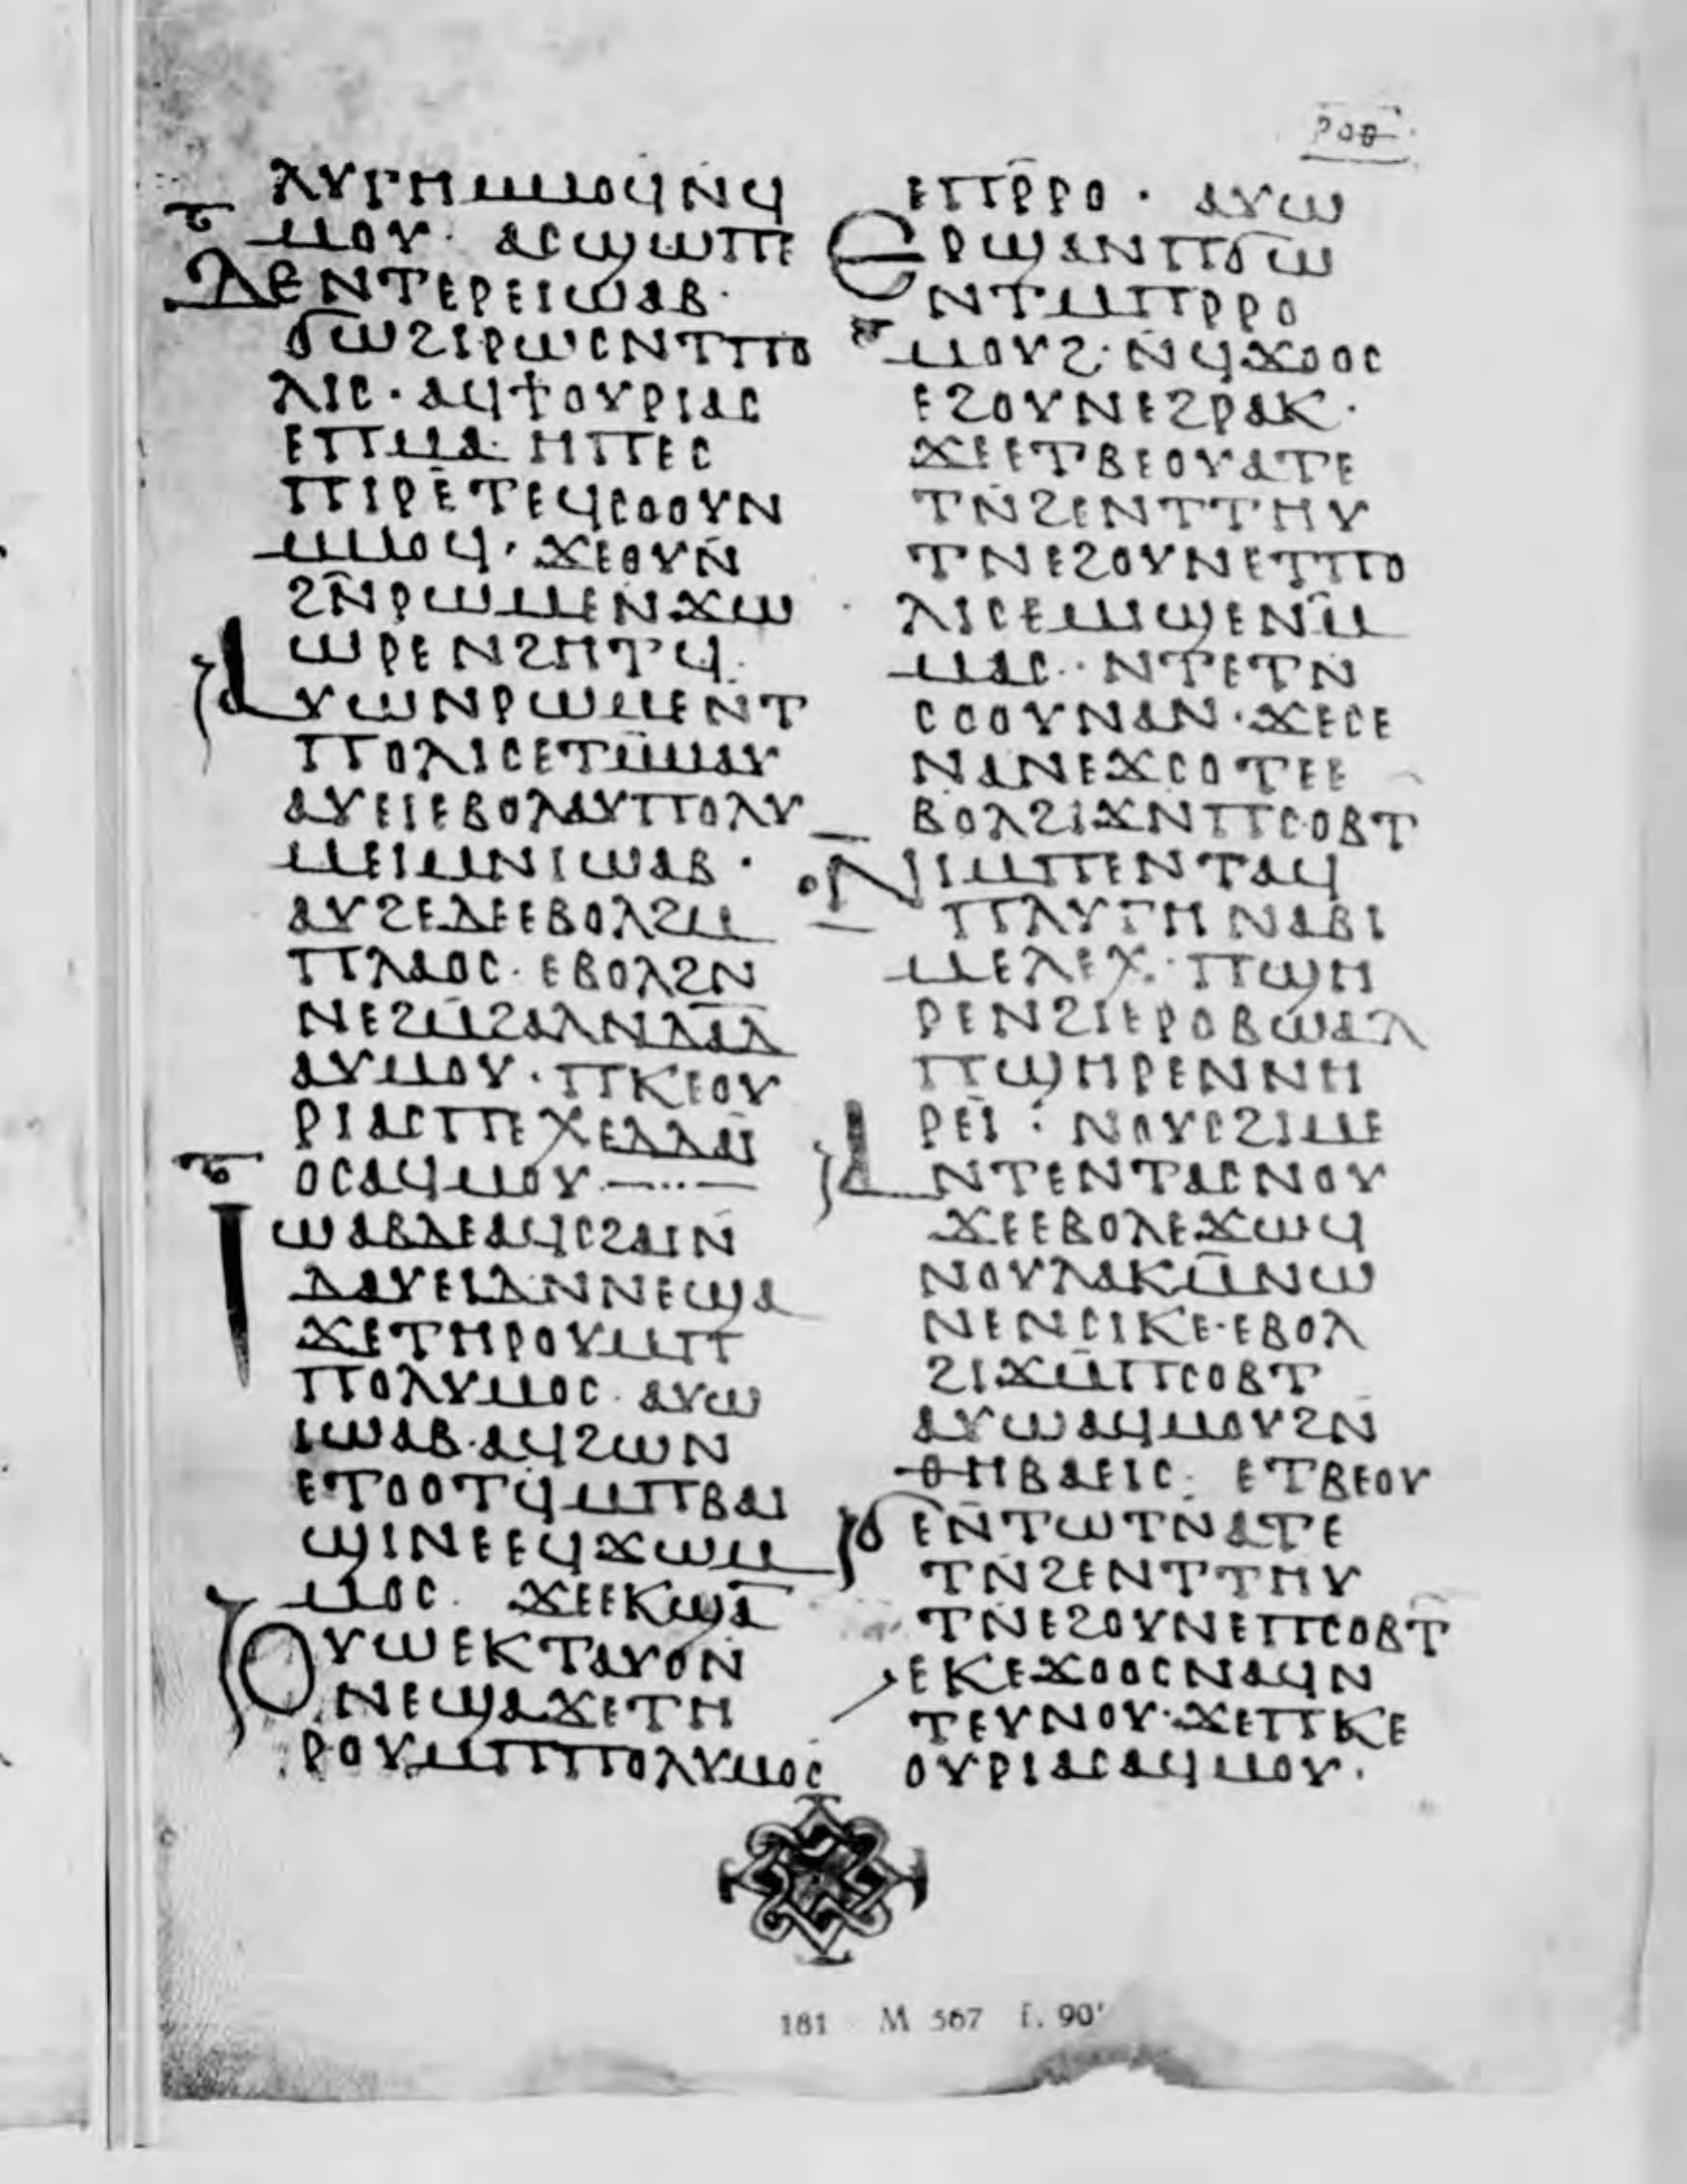 ⲣⲟⲑ
ⲗⲩⲅⲏⲙⲙⲟϥⲛϥ
ⲙⲟⲩ· ⲁⲥϣⲱⲡⲉ
ⲇⲉⲛⲧⲉⲣⲉⲓⲱⲁⲃ·
ϭⲱϩⲓⲣⲱⲥⲛⲧⲡⲟ
ⲗⲓⲥ· ⲁϥϯⲟⲩⲣⲓⲁⲥ
ⲉⲡⲙⲁ· ⲏⲡⲉⲥ
ⲡⲓⲣⲉⲧⲉϥⲥⲟⲟⲩⲛ
ⲙⲙⲟϥ· ϫⲉⲟⲩⲛ̄
ϩⲛ̄ⲣⲱⲙⲉⲛϫⲱ
ⲱⲣⲉⲛϩⲏⲧϥ·
ⲁⲩⲱⲛⲣⲱⲙⲉⲛⲧ
ⲡⲟⲗⲓⲥⲉⲧⲙ̄ⲙⲁⲩ
ⲁⲩⲉⲓⲉⲃⲟⲗⲁⲩⲡⲟⲗⲩ
ⲙⲉⲓⲙⲛⲓⲱⲁⲃ·
ⲁⲩϩⲉⲇⲉⲉⲃⲟⲗϩⲙ
ⲡⲗⲁⲟⲥ· ⲉⲃⲟⲗϩⲛ
ⲛⲉϩⲙ̄ϩⲁⲗⲛⲇⲁ̄ⲇ
ⲁⲩⲙⲟⲩ· ⲡⲕⲉⲟⲩ
ⲣⲓⲁⲥⲡⲉⲭⲉⲇⲇⲁⲓ̈
ⲟⲥⲁϥⲙⲟⲩ—··—
ⲓⲱⲁⲃⲇⲉⲁϥⲥϩⲁⲓⲛ̄
ⲇⲁⲩⲉⲓⲇⲛⲛⲉϣⲁ
ϫⲉⲧⲏⲣⲟⲩⲙⲡ
ⲡⲟⲗⲩⲙⲟⲥ· ⲁⲩⲱ
ⲓⲱⲁⲃ·ⲁϥϩⲱⲛ
ⲉⲧⲟⲟⲧϥⲙⲡⲃⲁⲓ
ϣⲓⲛⲉⲉϥϫⲱⲙ
ⲙⲟⲥ· ϫⲉⲉⲕϣⲁ̄
ⲟⲩⲱⲉⲕⲧⲁⲩⲟⲛ̄
ⲛⲉϣⲁϫⲉⲧⲏ
ⲣⲟⲩⲙⲡⲡⲟⲗⲩⲙⲟⲥ
ⲉⲡⲣ̄ⲣⲟ· ⲁⲩⲱ
ⲉⲣϣⲁⲛⲡϭⲱ
ⲛⲧⲙⲡⲣⲣⲟ
ⲙⲟⲩϩ·ⲛ̄ϥϫⲟⲟⲥ
ⲉϩⲟⲩⲛⲉϩⲣⲁⲕ·
ϫⲉⲉⲧⲃⲉⲟⲩⲁⲧⲉ
ⲧⲛ̄ϩⲉⲛⲧⲧⲏⲩ
ⲧⲛⲉϩⲟⲩⲛⲉⲧⲡⲟ
ⲗⲓⲥⲉⲙⲓϣⲉⲛⲙ̄
ⲙⲁⲥ· ⲛⲧⲉⲧⲛ
ⲥⲟⲟⲩⲛⲁⲛ·ϫⲉⲥⲉ
ⲛⲁⲛⲉϫⲥⲟⲧⲉⲉ
ⲃⲟⲗϩⲓϫⲛⲡⲥⲟⲃⲧ
ⲛⲓⲙⲡⲉⲛⲧⲁϥ
ⲡⲗⲩⲅⲏⲛⲁⲃⲓ
ⲙⲉⲗⲉⲭ·ⲡϣⲏ
ⲣⲉⲛϩⲓⲉⲣⲟⲃⲱⲁⲗ
ⲡϣⲏⲣⲉⲛⲛⲏ
ⲣⲉⲓ̈· ⲛⲟⲩⲥϩⲓⲙⲉ
ⲁⲛⲧⲉⲛⲧⲁⲥⲛⲟⲩ
ϫⲉⲉⲃⲟⲗⲉϫⲱϥ
ⲛⲟⲩⲗⲁⲕⲙ̄ⲛⲱ
ⲛⲉⲛⲥⲓⲕⲉ·ⲉⲃⲟⲗ
ϩⲓϫⲙ̄ⲡⲥⲟⲃⲧ
ⲁⲩⲱⲁϥⲙⲟⲩϩⲛ̄
ⲑⲏⲃⲁⲉⲓⲥ· ⲉⲧⲃⲉⲟⲩ
ϭⲉⲛ̄ⲧⲱⲧⲛⲁⲧⲉ
ⲧⲛ̄ϩⲉⲛⲧⲧⲏⲩ
ⲧⲛⲉϩⲟⲩⲛⲉⲡⲥⲟⲃⲧ̄
ⲉⲕⲉϫⲟⲟⲥⲛⲁϥⲛ
ⲧⲉⲩⲛⲟⲩ·ϫⲉⲡⲕⲉ
ⲟⲩⲣⲓⲁⲥⲁϥⲙⲟⲩ·
181 M 567 f. 90'